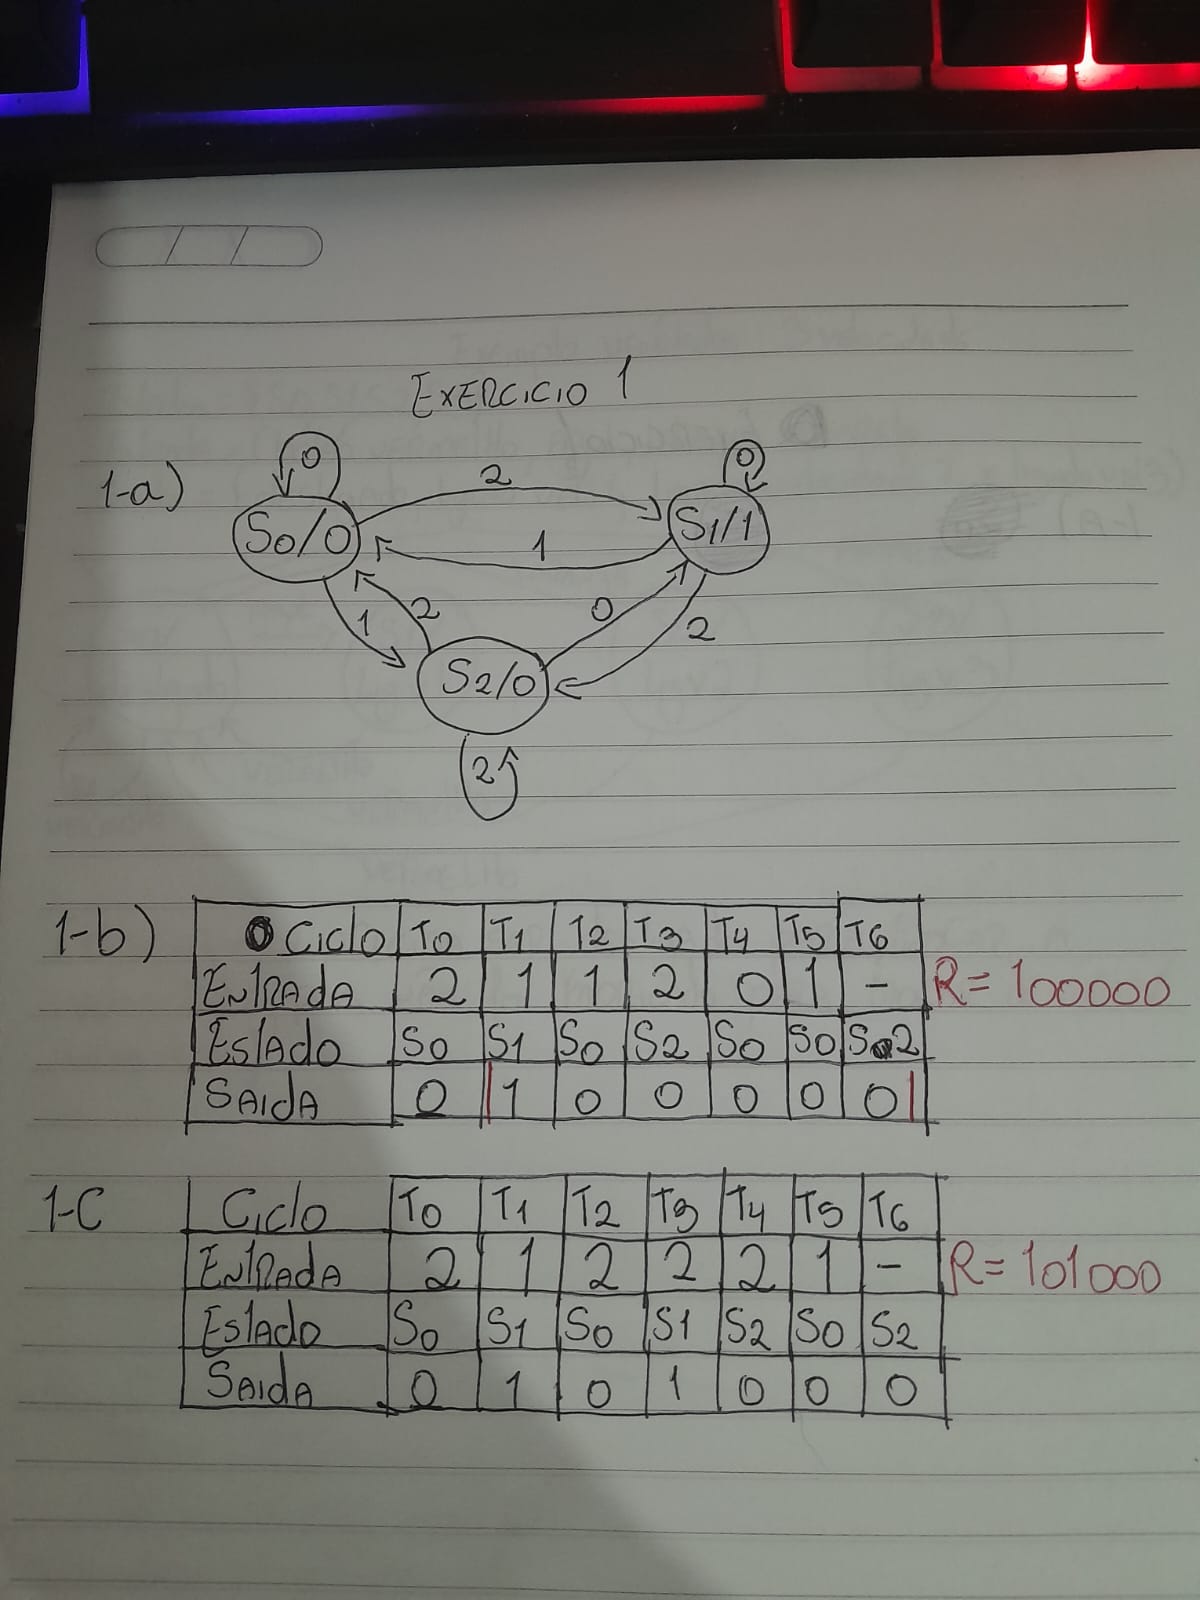 EXERCICIO 1
1-a)
0 0
2
S0/0 S1/1
1
1 2 0 2
S2/0
2
1-b) Ciclo T0 T1 T2 T3 T4 T5 T6
ENTRADA 2 1 1 2 0 1 - R= 100000
EStADO S0 S1 S0 S2 S0 S0 S2
SAIDA 0 1 0 0 0 0 0
1-C Ciclo T0 T1 T2 T3 T4 T5 T6
ENTRADA 2 1 2 2 2 1 - R= 101000
EStADO S0 S1 S0 S1 S2 S0 S2
SAIDA 0 1 0 1 0 0 0